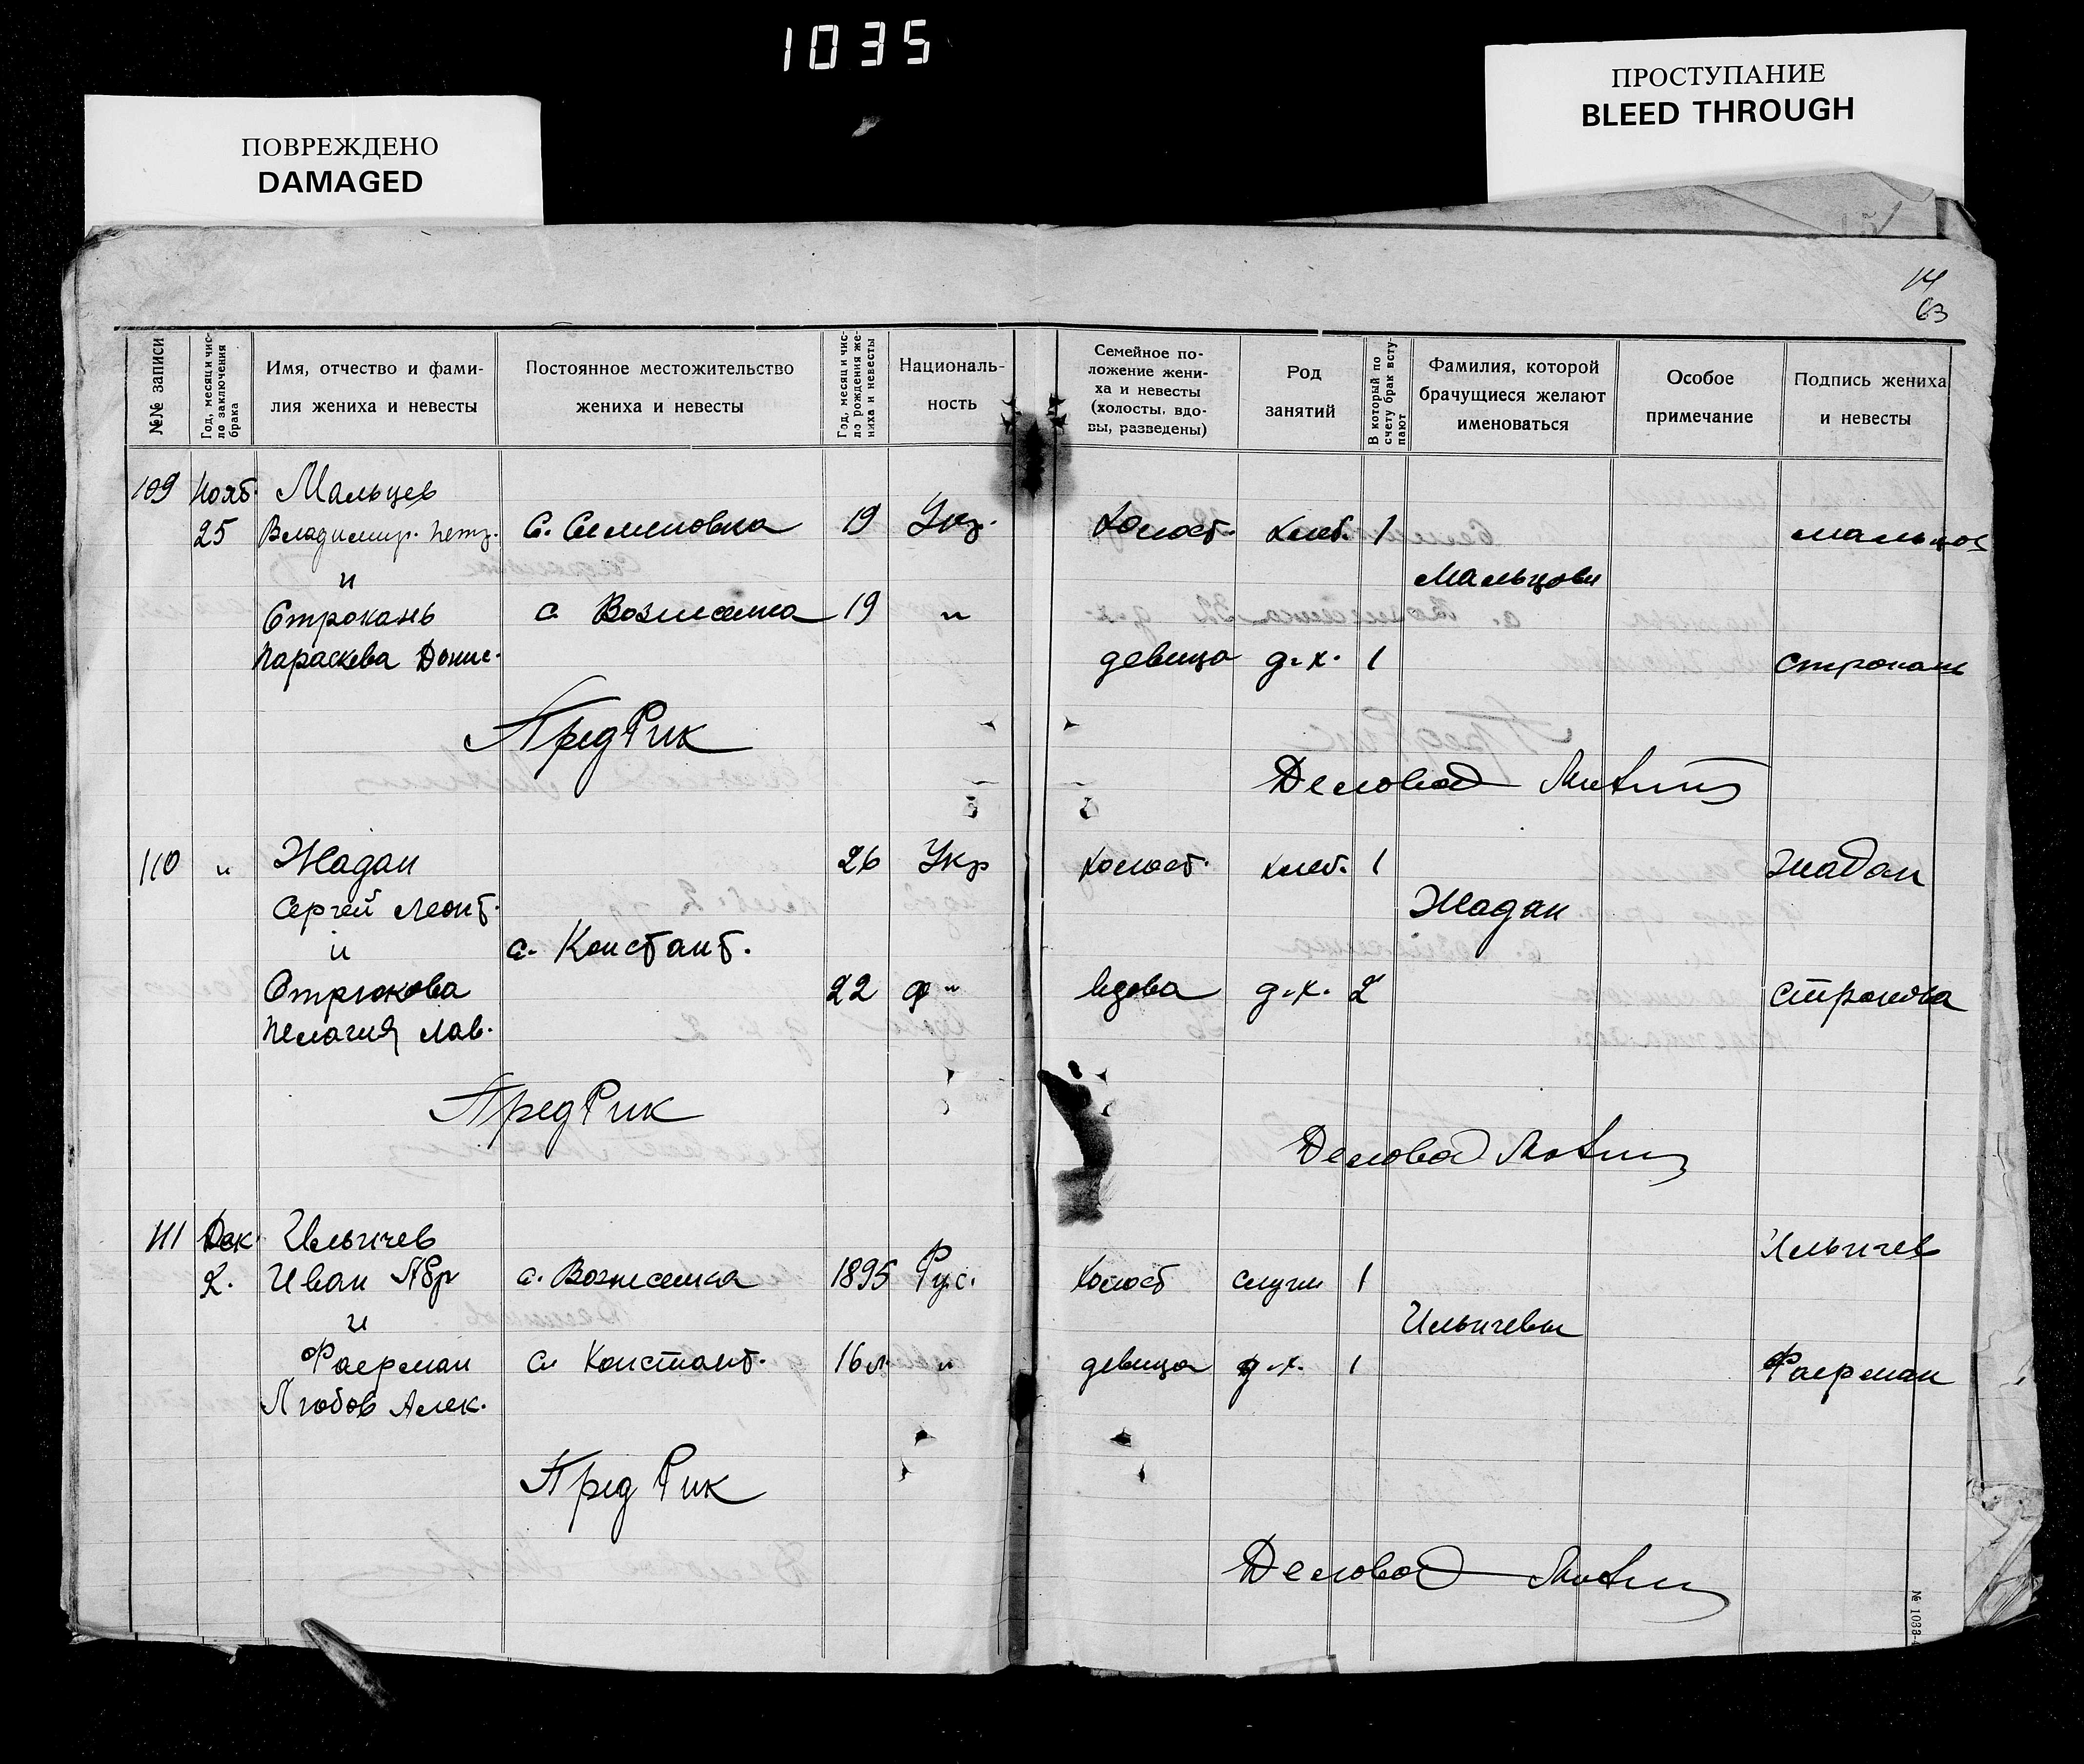 1035
ПОВРЕЖДЕНО
DAMAGED
ПРОСТУПАНИЕ
BLEED THROUGH
14
63
№№ записи
Год, месяц и чис-
ло заключения
брака
Имя, отчество и фами-
лия жениха и невесты
Постоянное местожительство
жениха и невесты
Год, месяц и чис-
ло рождения же-
ниха и невесты
Националь-
ность
Семейное по-
ложение жени-
ха и невесты
(холосты, вдо-
вы, разведены)
Род
занятий
В который по
счету брак всту-
пают
Фамилия, которой
брачущиеся желают
именоваться
Особое
примечание
Подпись жениха
и невесты
109 Нояб. Мальцев
25 Владимир. Петр. С. Семеновка 19 Укр. Холост. хлеб. 1 Мальцов
и Мальцовы
Строкань с. Вознесенка 19 "
Параскева Донис. девица д.х. 1 Строкань
Пред Рик
Деловод
110 " Жадан 26 Укр холост. хлеб. 1 Жадан
Сергей Леонт. Жадан
и с. Констант.
Стрюкова 22 " вдова д.х. 2 Стрюкова
Пелагия Лав.
Пред Рик
Деловод
111 Дек. Ильичев Ильичев
2. Иван Абр с. Вознесенка 1895 Рус. холост служ 1
и Ильичевы
Фаерман с. Констант. 16 л. " девица д.х. 1 Фаерман
Любов Алек.
Пред Рик
Деловод